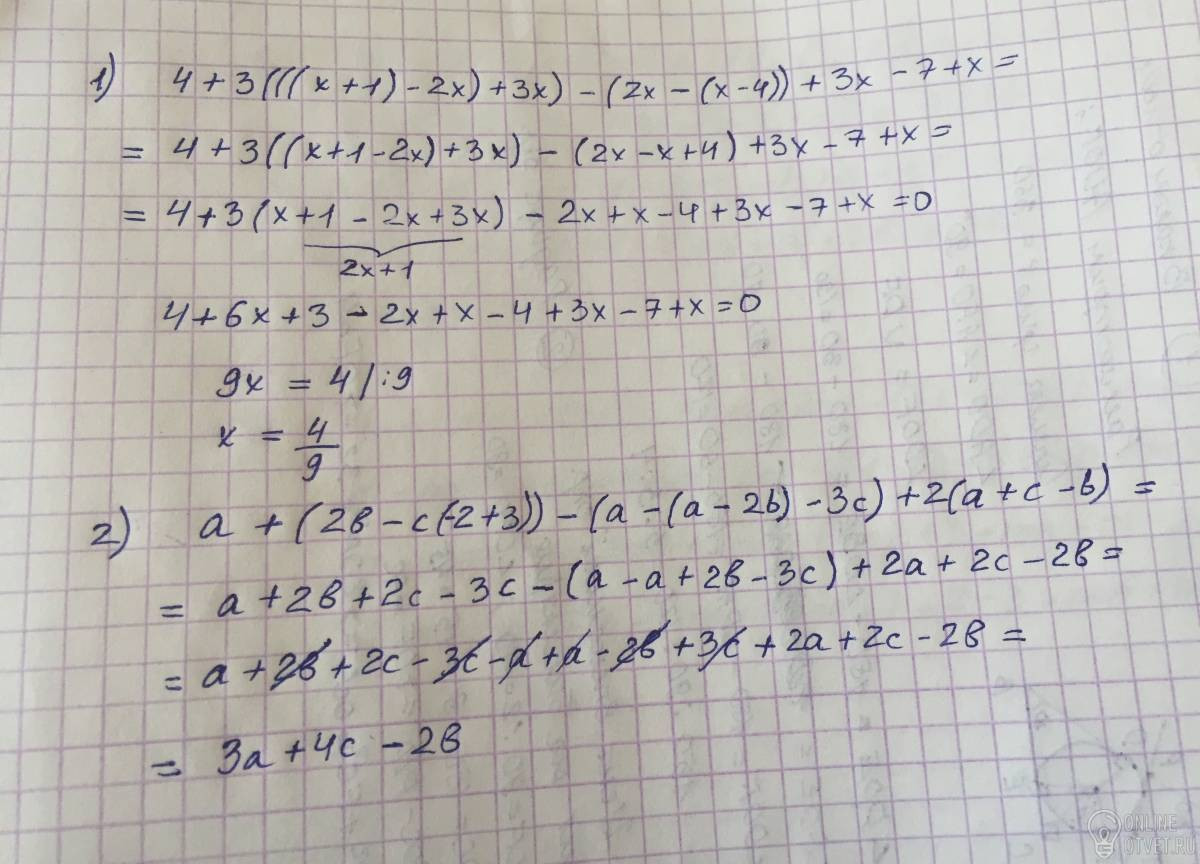 1) 4 + 3(((x+1) - 2x) + 3x) - (2x - (x-4)) + 3x - 7 + x =
= 4 + 3((x+1-2x) + 3x) - (2x - x + 4) + 3x - 7 + x =
= 4 + 3(x + 1 - 2x + 3x) - 2x + x - 4 + 3x - 7 + x = 0
2x+1
4 + 6x + 3 - 2x + x - 4 + 3x - 7 + x = 0
9x = 4 /:9
x = 4/9
2) a + (2в - c(-2+3)) - (a - (a - 2b) - 3c) + 2(a + c - b) =
= a + 2в + 2c - 3c - (a - a + 2в - 3c) + 2a + 2c - 2в =
= a + 2в + 2c - 3c - a + a - 2в + 3c + 2a + 2c - 2в =
= 3a + 4c - 2в
ONLINE
OTVET.RU